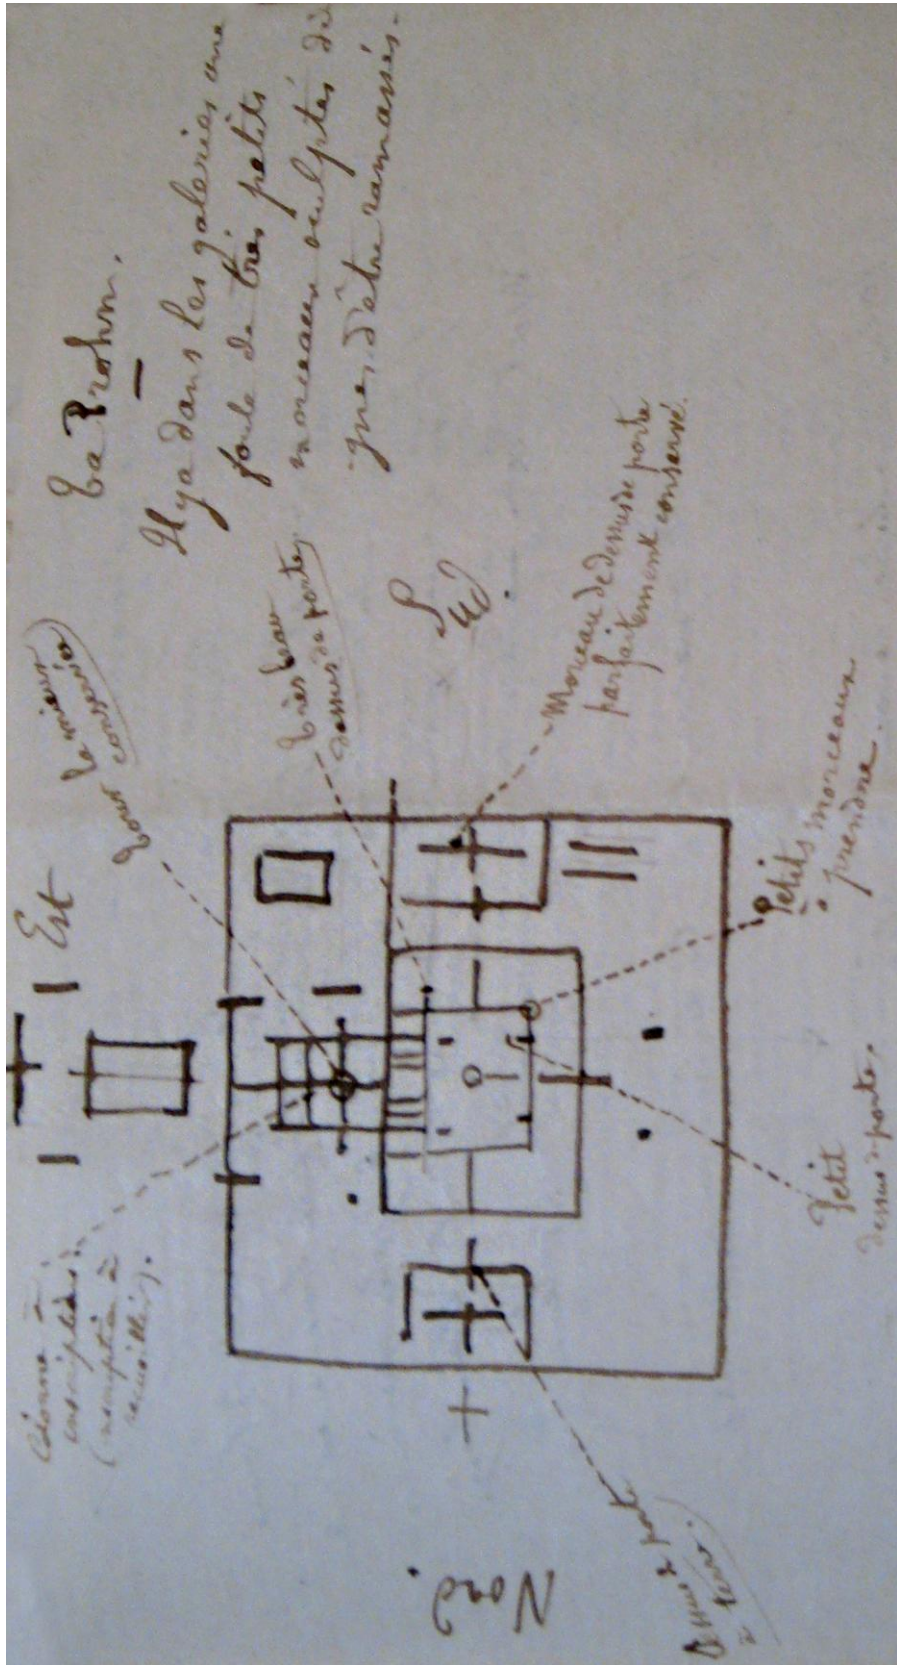 Ta Prohm.
Il y a dans les galeries une
foule de très petits
morceaux sculptés di-
gnes d'être ramassés.
Est
Tour le mieux
conservée
Très beau
dessus de porte.
Sud.
Morceau de dessus de porte
parfaitement conservé.
Petits morceaux
à prendre.
Petit
dessus de porte.
Dessus de porte
à terre.
Nord.
à
inscription
(inscription à
recueillir).